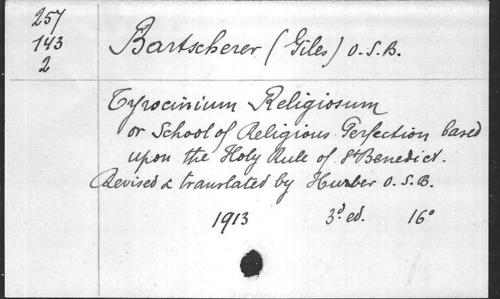 257
143
2
Bartscherer (Giles) O.S.B.
Tyrocinium Religiosum
or School of Religious Perfection based
upon the Holy Rule of St Benedict.
Revised & translated by Huber O.S.B.
1913 3d ed. 16°